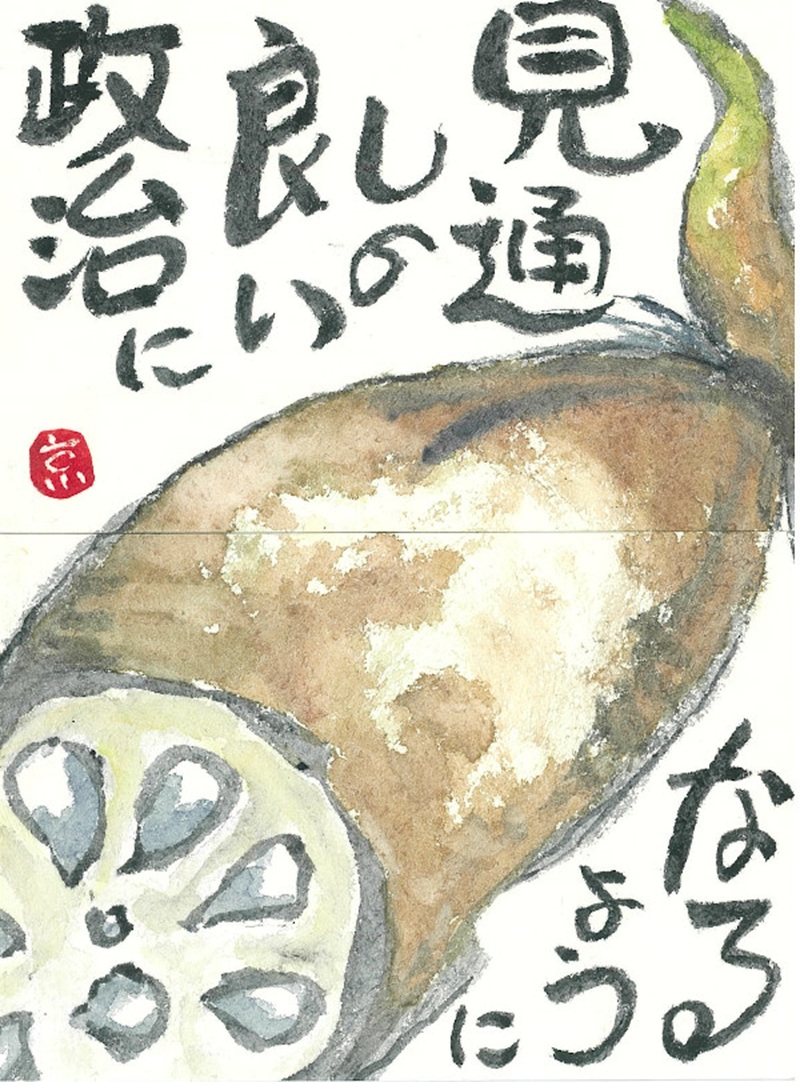 見通
しの
良い
政治に
なる
よう
に
京